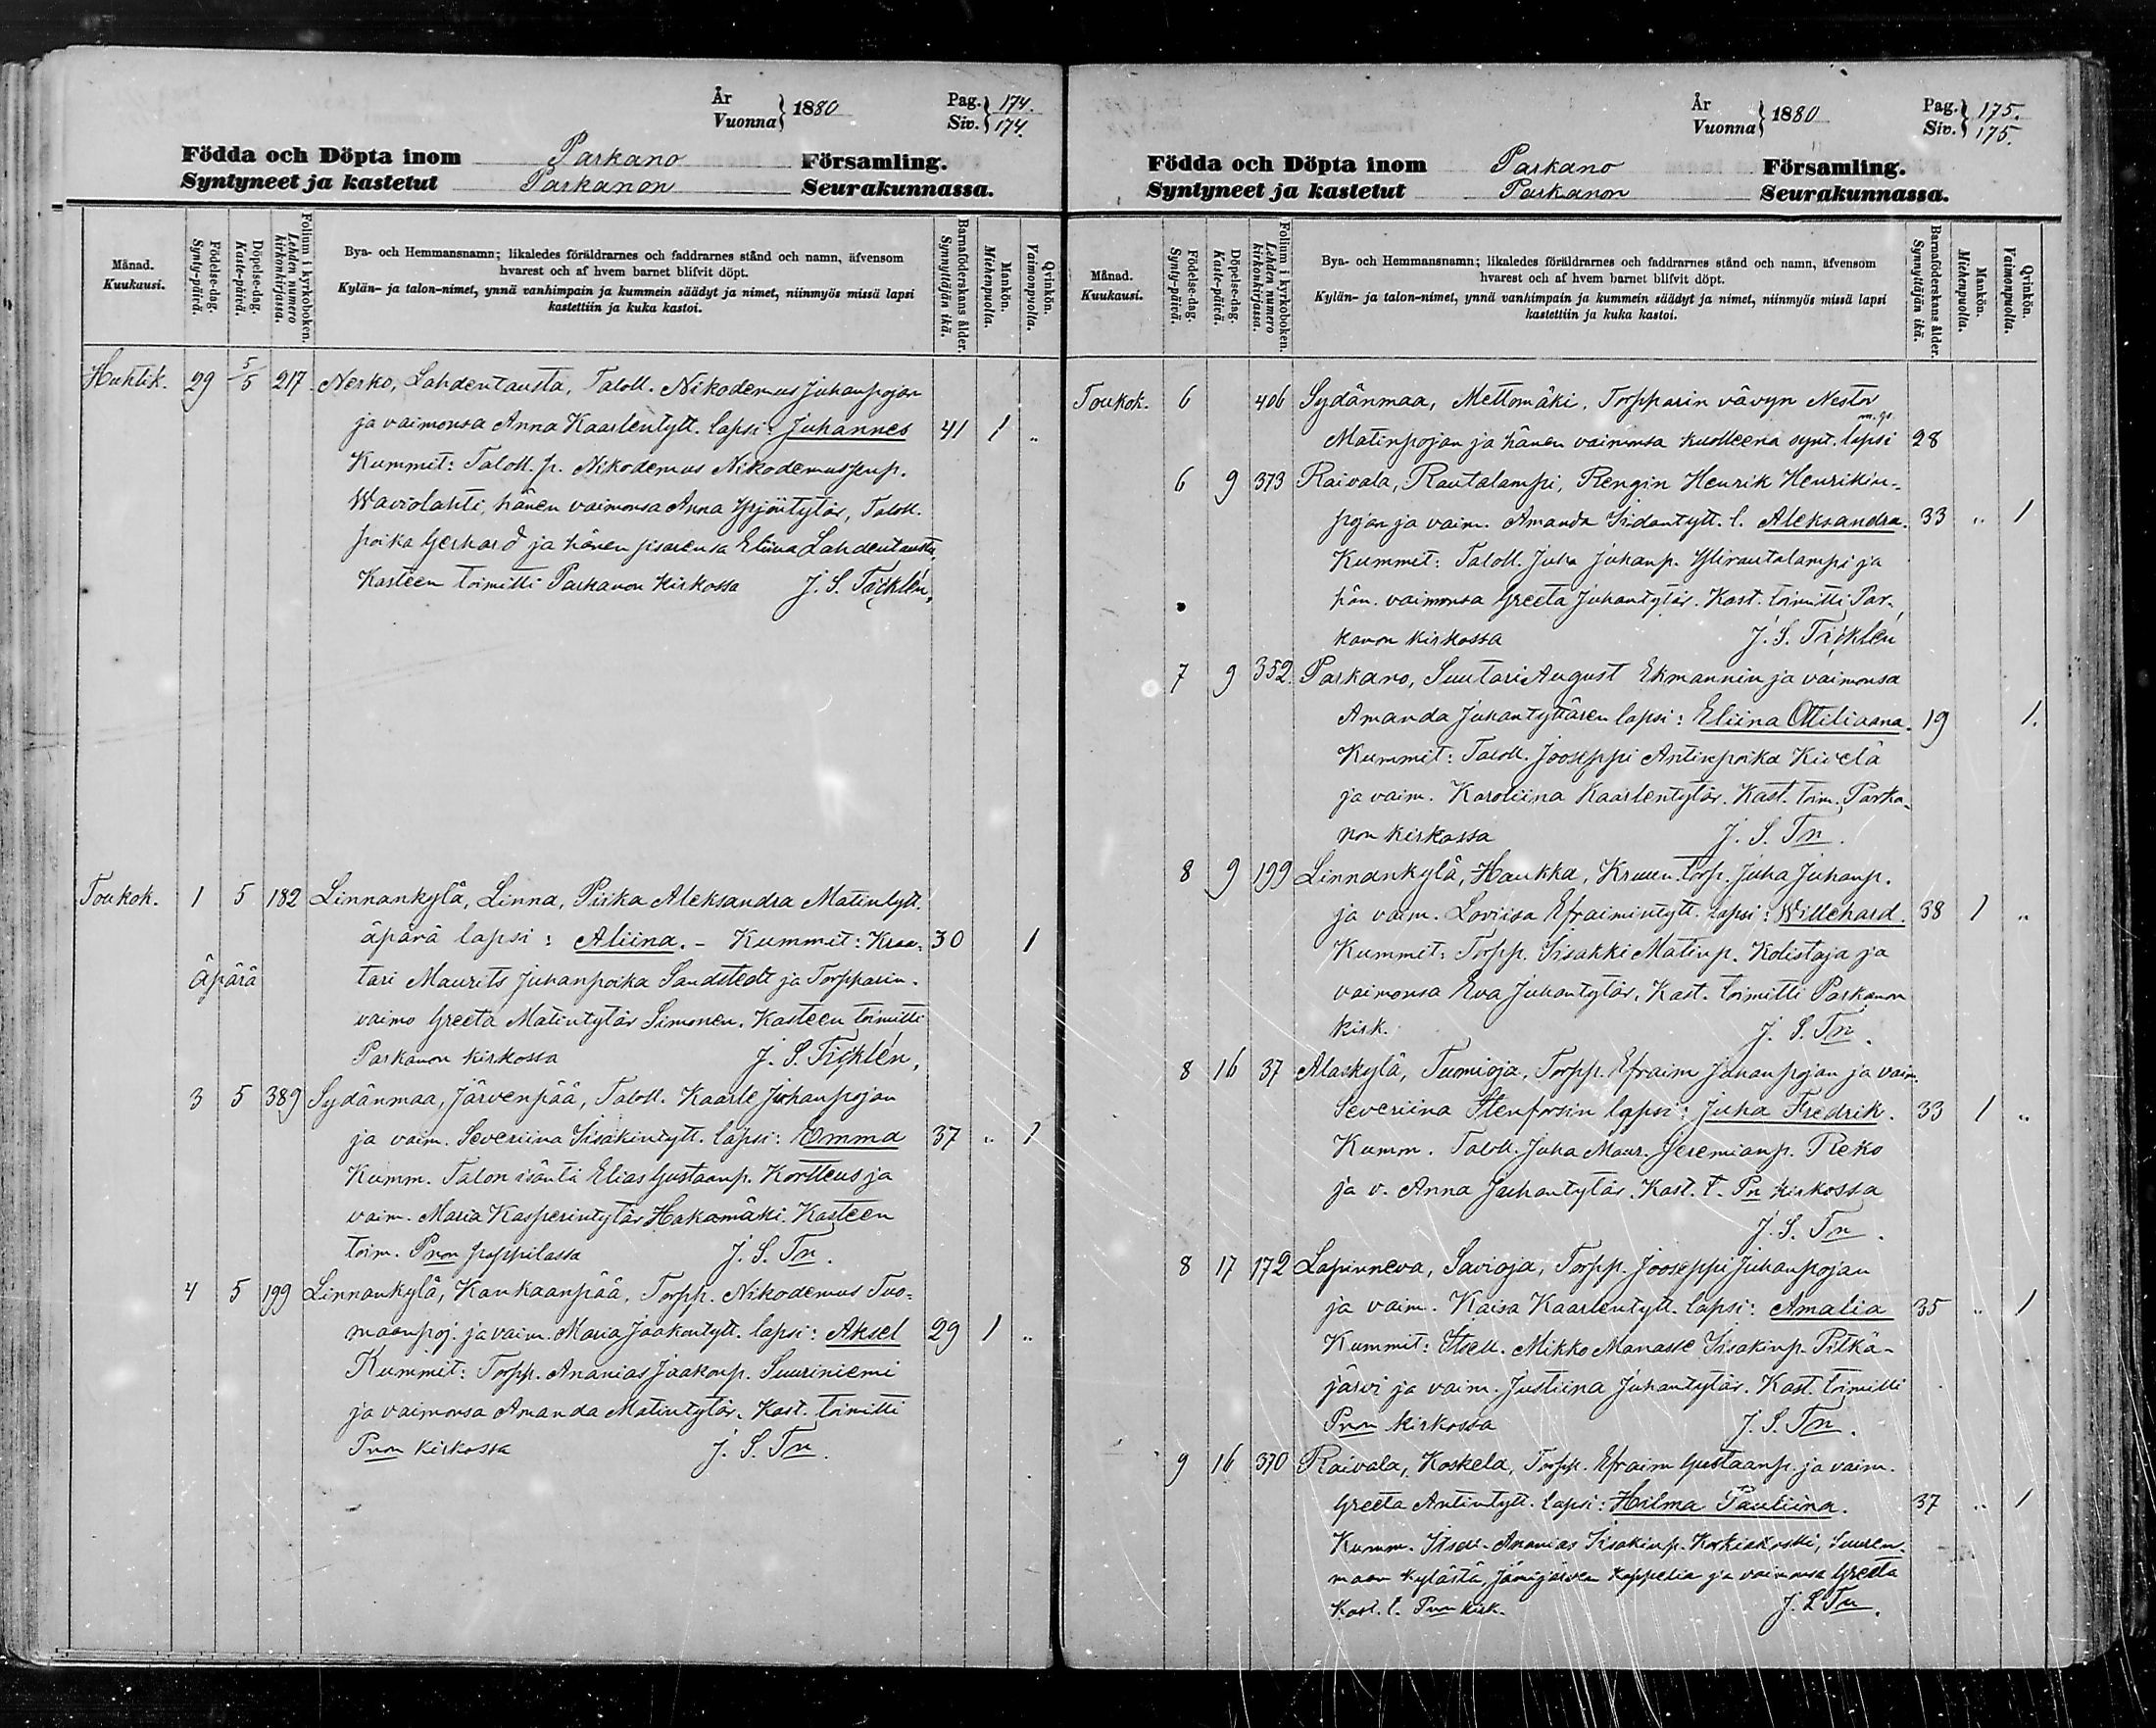 År
Vuonna } 1880
Pag. } 174.
Siv. } 174.
Födda och Döpta inom Parkano Församling.
Syntyneet ja kastetut Parkanon Seurakunnassa.
Månad.
Kuukausi.
Födelse-dag.
Synty-päivä.
Döpelse-dag.
Kaste-päivä.
Folium i kyrkoboken.
Lehden numero kirkonkirjassa.
Bya- och Hemmansnamn; likaledes föräldrarnes och faddrarnes stånd och namn, äfvensom
hvarest och af hvem barnet blifvit döpt.
Kylän- ja talon-nimet, ynnä vanhimpain ja kummein säädyt ja nimet, niinmyös missä lapsi
kastettiin ja kuka kastoi.
Barnaföderskans ålder.
Synnyttäjän ikä.
Mankön.
Miehenpuolia.
Qvinkön.
Vaimonpuolia.
Huhtik. 29 5/5 217. Nerko, Lahdentausta, Taloll. Nikodemus Juhanpojan
ja vaimonsa Anna Kaarlentytt. lapsi: Juhannes 41 1 "
Kummit: Taloll. p. Nikodemus Nikodemusenp.
Waviolahti, hänen vaimonsa Anna Yrjöntytär, Taloll.
poika Gerhard ja hänen sisarensa Eliina Lahdentausta
Kasteen toimitti Parkanon kirkossa J. S. Täcklén.
Toukok. 1 5 182 Linnankylä, Linna, Piika Aleksandra Matintytt.
äpärä lapsi: Aliina. - Kummit: Kraa= 30 1
äpärä tari Maurits Juhanpoika Sandstedt ja Torpparin-
vaimo Greeta Matintytär Simonen. Kasteen toimitti
Parkanon kirkossa J. S. Täcklén.
3 5 389 Sydänmaa, Järvenpää, Taloll. Kaarle Juhanpojan
ja vaim. Severiina Iisakintytt. lapsi: Emma 37 " 1
Kumm. Talon isäntä Elias Gustaanp. Kortteus ja
vaim. Maria Kasperintytär Hakamäki. Kasteen
toim. Pnon pappilassa J. S. Tn.
4 5 199 Linnankylä, Kankaanpää, Torpp. Nikodemus Tuo=
maanpoj. ja vaim. Maria Jaakontytt. lapsi: Aksel 29 1 "
Kummit: Torpp. Ananias Jaakonp. Suuriniemi
ja vaimonsa Amanda Matintytär. Kast. toimitti
Pnon kirkossa J. S. Tn.
År
Vuonna } 1880
Pag. } 175.
Siv. } 175.
Födda och Döpta inom Parkano Församling.
Syntyneet ja kastetut Parkanon Seurakunnassa.
Månad.
Kuukausi.
Födelse-dag.
Synty-päivä.
Döpelse-dag.
Kaste-päivä.
Folium i kyrkoboken.
Lehden numero kirkonkirjassa.
Bya- och Hemmansnamn; likaledes föräldrarnes och faddrarnes stånd och namn, äfvensom
hvarest och af hvem barnet blifvit döpt.
Kylän- ja talon-nimet, ynnä vanhimpain ja kummein säädyt ja nimet, niinmyös missä lapsi
kastettiin ja kuka kastoi.
Barnaföderskans ålder.
Synnyttäjän ikä.
Mankön.
Miehenpuolia.
Qvinkön.
Vaimonpuolia.
Toukok. 6 406 Sydänmaa, Mettomäki, Torpparin vävyn Nestor
Matinpojan ja hänen vaimonsa kuolleena synt. lapsi 28
6 9 373 Raivala, Rautalampi, Rengin Henrik Henrikin=
pojan ja vaim. Amanda Iidantytt. l. Aleksandra. 33 " 1
Kummit: Taloll. Juha Juhanp. Ylirautalampi ja
hän. vaimonsa Greeta Juhantytär. Kast. toimitti Par-
kanon kirkossa J. S. Täcklén
7 9 352. Parkano, Suutari August Ekmannin ja vaimonsa
Amanda Juhantyttären lapsi: Eliina Ottiliaana. 19 1.
Kummit: Taloll. Jooseppi Antinpoika Kivelä
ja vaim. Karoliina Kaarlentytär. Kast. toim. Parka-
non kirkossa J. S. Tn.
8 9 199 Linnankylä, Haukka, Kruun. torp. Juha Juhanp.
ja vaim. Loviisa Efraimintytt. lapsi: Willehard. 38 1 "
Kummit: Torpp. Iisakki Matinp. Kolistaja ja
vaimonsa Eva Juhantytär. Kast. toimitti Parkanon
kirk. J. S. Tn.
8 16 37 Alaskylä, Tumioja, Torpp. Efraim Juhanpojan ja vaim.
Severiina Stenforsin lapsi: Juha Fredrik. 33 1 "
Kumm. Taloll. Juha Maur. Jeremianp. Reko
ja v. Anna Juhantytär. Kast. t. Pn kirkossa
J. S. Tn.
8 17 172 Lapinneva, Savioja, Torpp. Jooseppi Juhanpojan
ja vaim. Kaisa Kaarlentytt. lapsi: Amalia 35 " 1
Kummit: Itsell. Mikko Manasse Iisakinp. Pitkä-
järvi ja vaim. Justiina Juhantytär. Kast. toimitti
Pnon kirkossa J. S. Tn.
9 16 370 Raivala, Koskela, Torpp. Efraim Gustaanp. ja vaim.
Greeta Antintytt. lapsi: Hilma Pauliina. 37 " 1
Kumm. Itsell. Ananias Iisakinp. Korkiakoski, Suuren-
maan kylästä, Jämijärven kappelia ja vaimonsa Greeta
Kast. t. Pnon kirk. J. S. Tn.